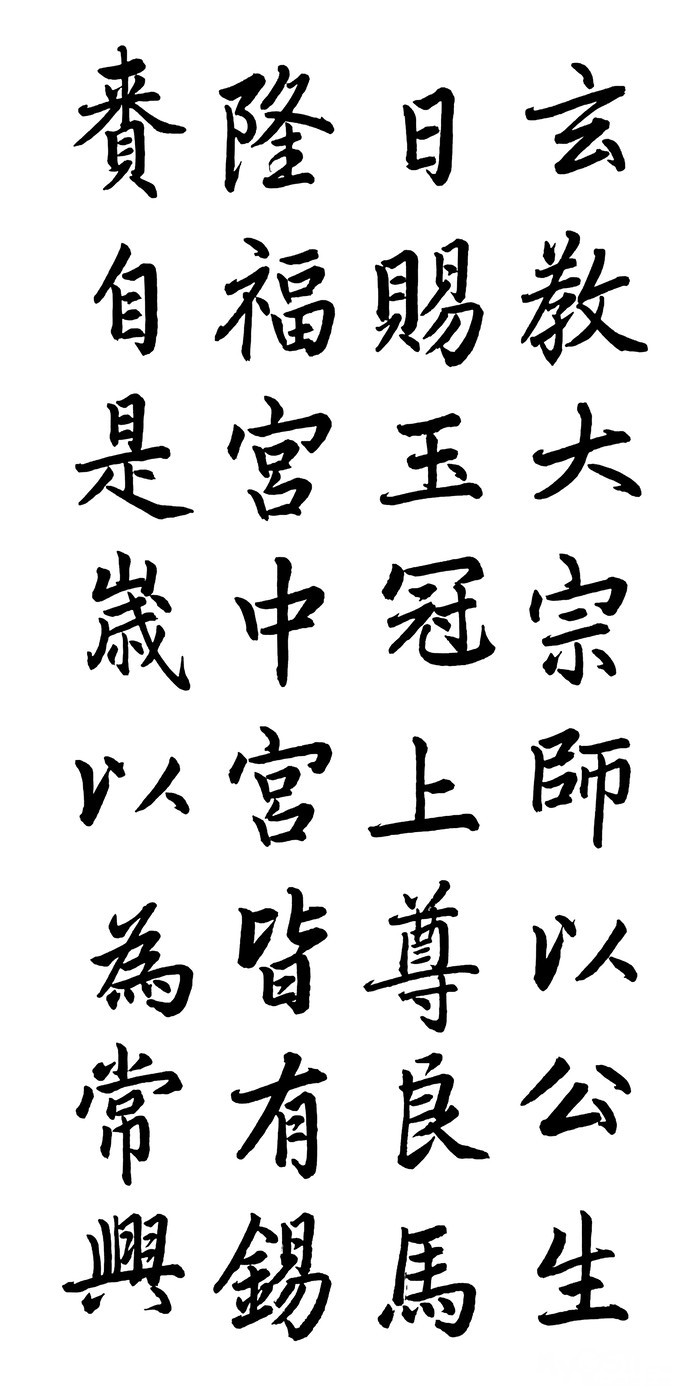 玄教大宗師以公生
日賜玉冠上尊良馬
隆福宮中宮皆有錫
賚自是歲以為常興